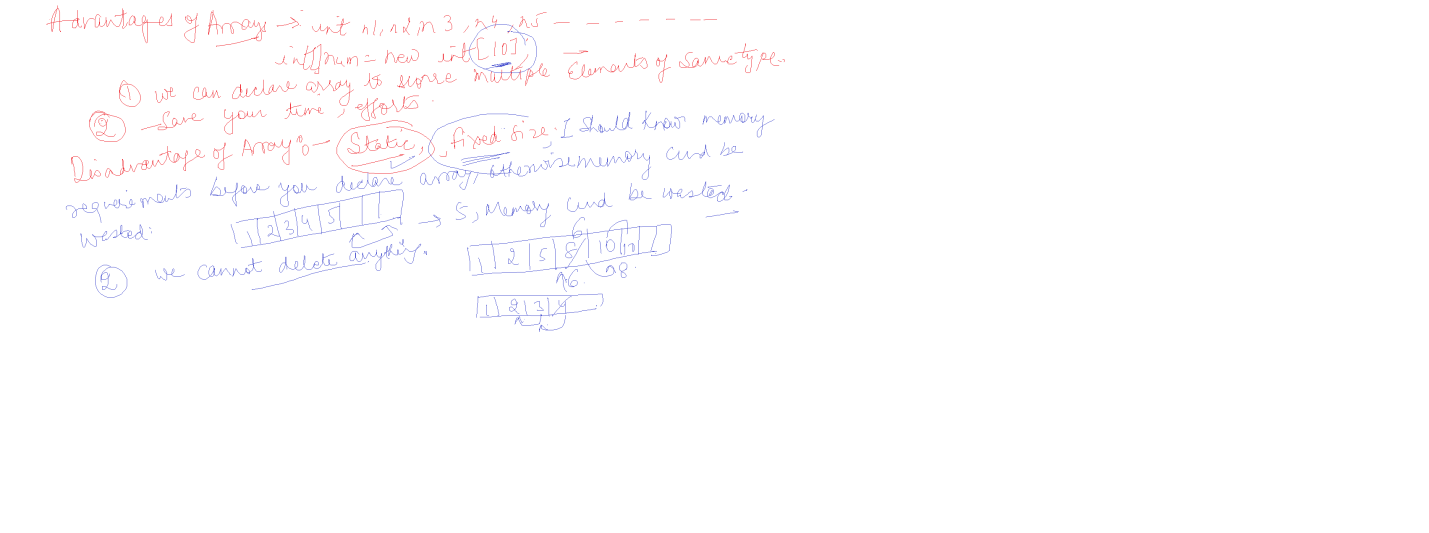 Advantages of Arrays → int n1, n2, n3, n4, n5 - - - - - - -
int[] num = new int[10];
① we can declare array to store multiple Elements of same type.
② - Save your time, efforts.
Disadvantage of Array:- Static, fixed size, I should know memory
requirements before you declare array, otherwise memory will be
wasted:
1 2 3 4 5 → 5, Memory will be wasted.
② we cannot delete anything.
6
1 2 5 8 10 10
6 8
1 2 3 4